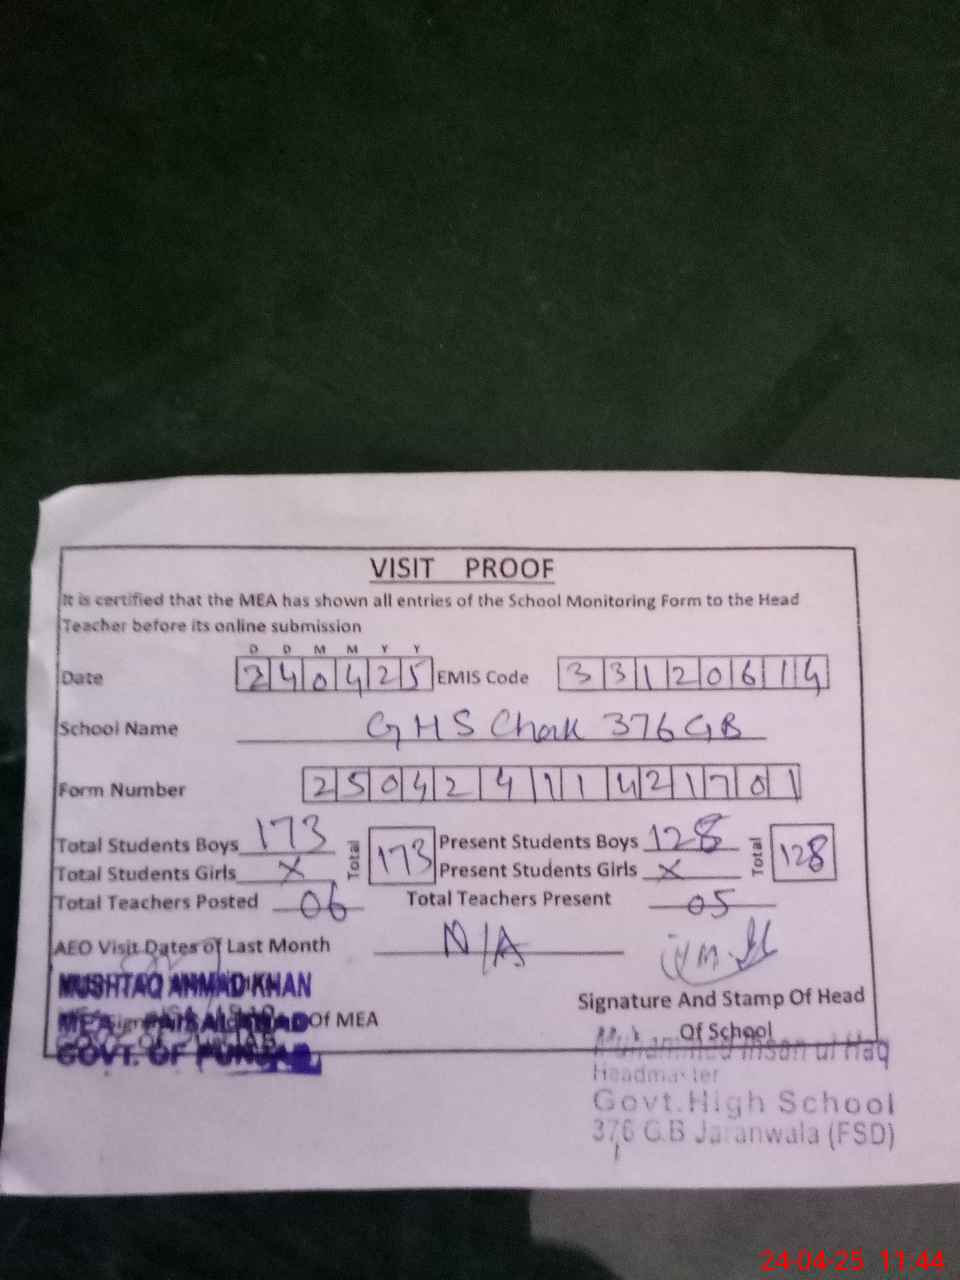 VISIT PROOF
It is certified that the MEA has shown all entries of the School Monitoring Form to the Head
Teacher before its online submission
D D M M Y Y
Date 240425 EMIS Code 33120614
School Name GHS Chak 376 GB
Form Number 250424111421701
Total Students Boys 173 Total 173 Present Students Boys 128 Total 128
Total Students Girls X Present Students Girls X
Total Teachers Posted 06 Total Teachers Present 05
AEO Visit Dates of Last Month N/A
MUSHTAQ AHMAD KHAN
Signature And Stamp Of Head
MEA FAISALABAD Of MEA
Of School
GOVT. OF PUNJAB
Muhammed Ihsan ul Haq
Headmaster
Govt.High School
376 G.B Jaranwala (FSD)
24-04-25 11:44